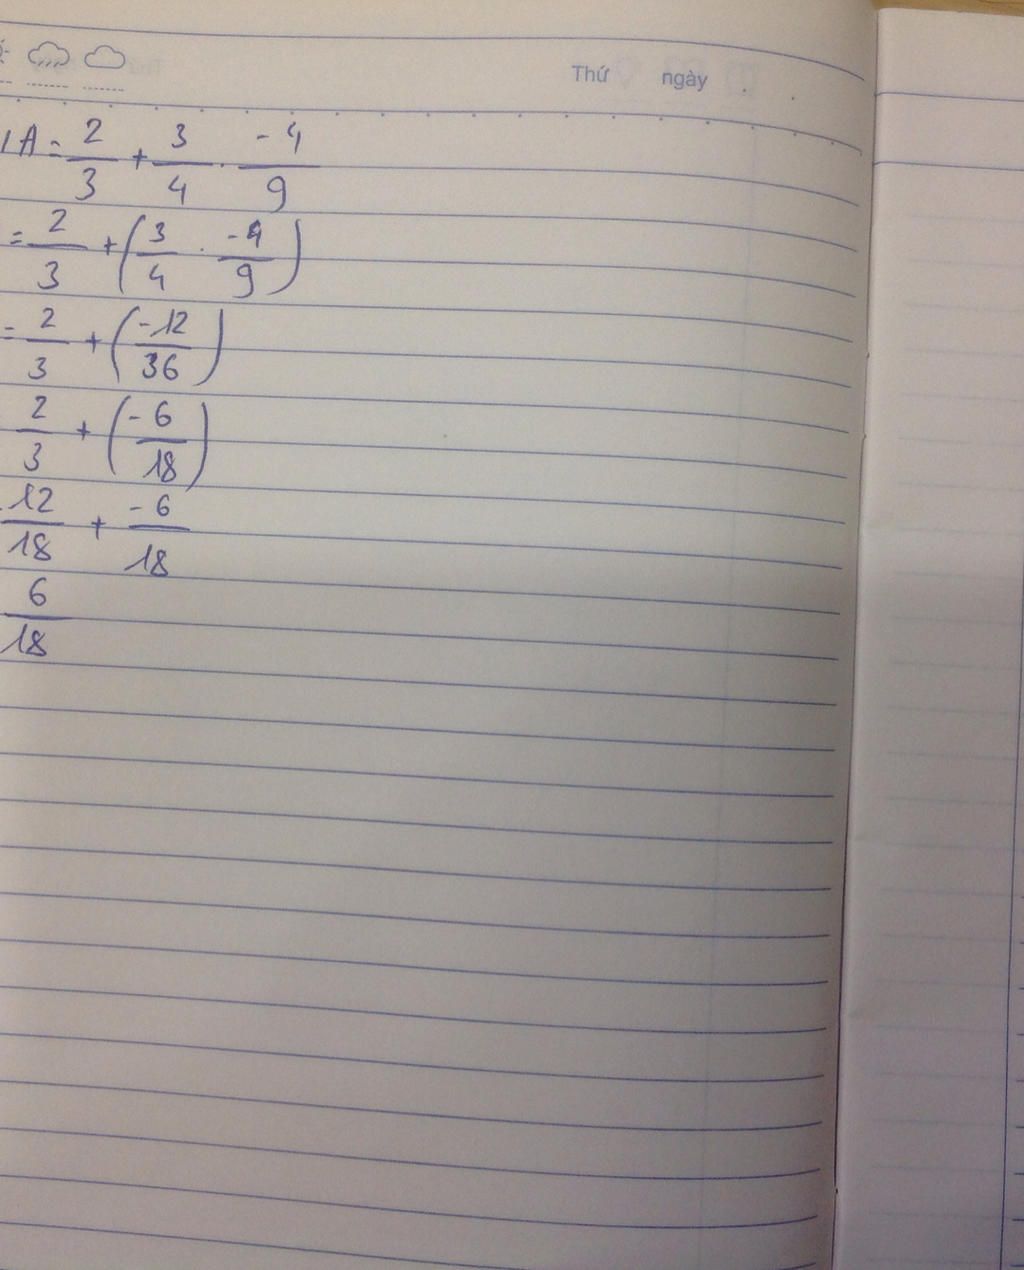 Thứ ngày
A = 2/3 + 3/4 . -4/9
= 2/3 + (3/4 . -4/9)
= 2/3 + (-12/36)
2/3 + (-6/18)
12/18 + -6/18
6/18